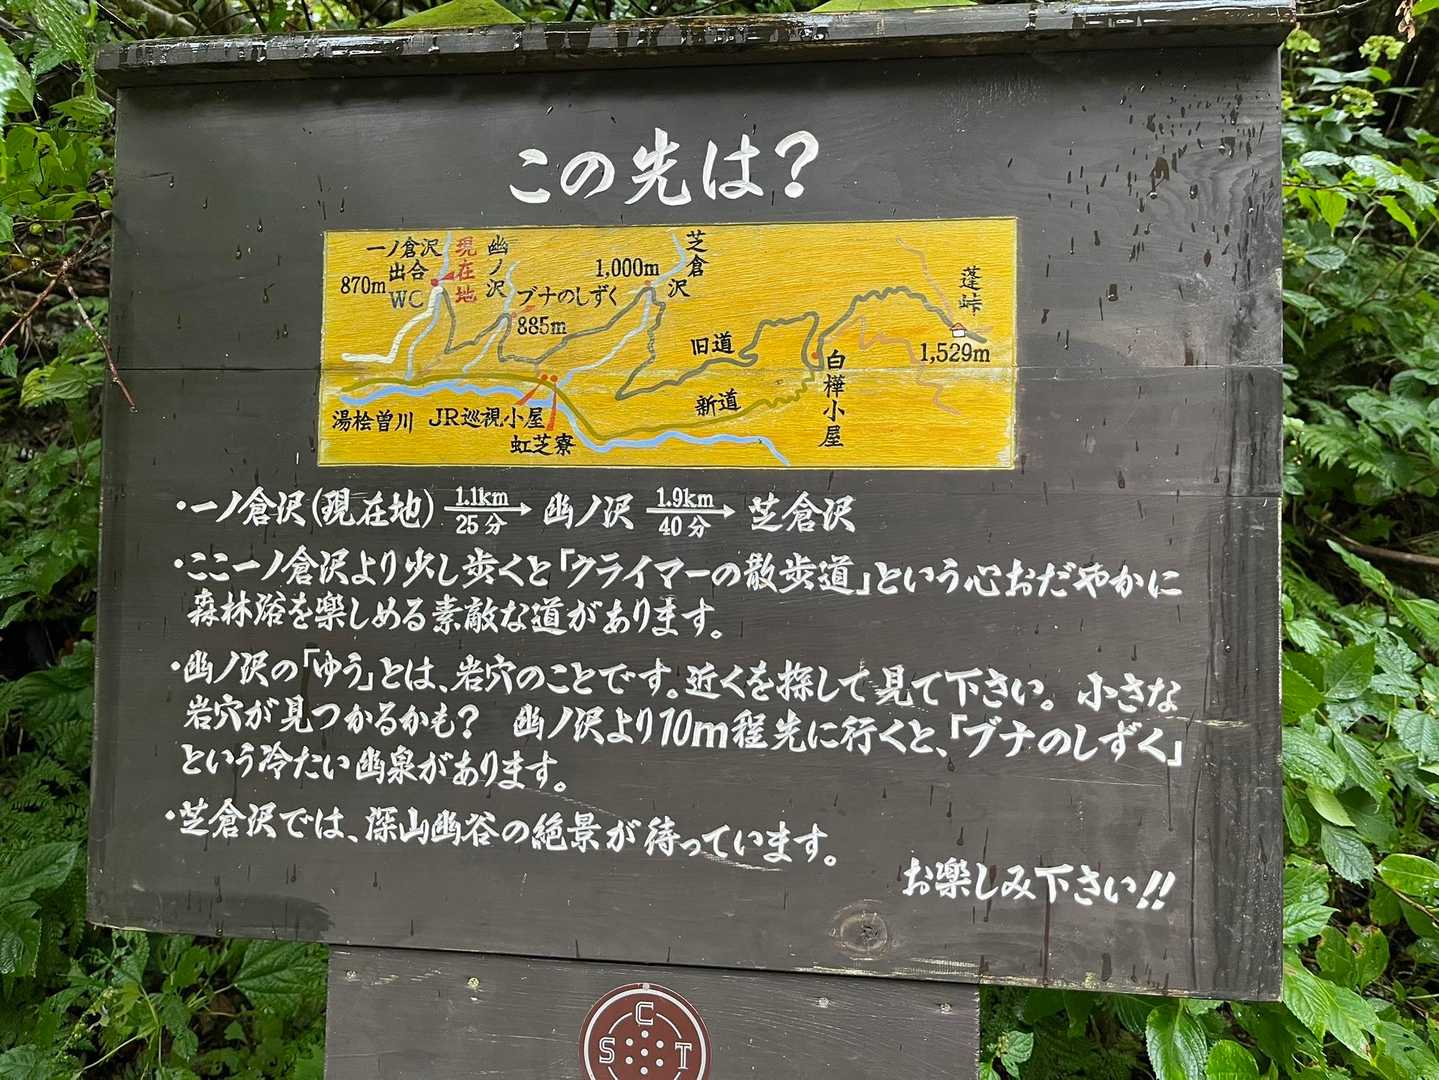 この先は?
一ノ倉沢
出合
870m
WC
現在地
幽ノ沢
ブナのしずく
885m
1,000m
芝倉沢
旧道
新道
蓬峠
1,529m
白樺小屋
湯桧曽川
JR巡視小屋
虹芝寮
・一ノ倉沢(現在地) 1.1km 25分 → 幽ノ沢 1.9km 40分 → 芝倉沢
・ここ一ノ倉沢より少し歩くと「クライマーの散歩道」という心おだやかに
森林浴を楽しめる素敵な道があります。
・幽ノ沢の「ゆう」とは、岩穴のことです。近くを探して見て下さい。 小さな
岩穴が見つかるかも? 幽ノ沢より10m程先に行くと、「ブナのしずく」
という冷たい幽泉があります。
・芝倉沢では、深山幽谷の絶景が待っています。
お楽しみ下さい!!
C
S T